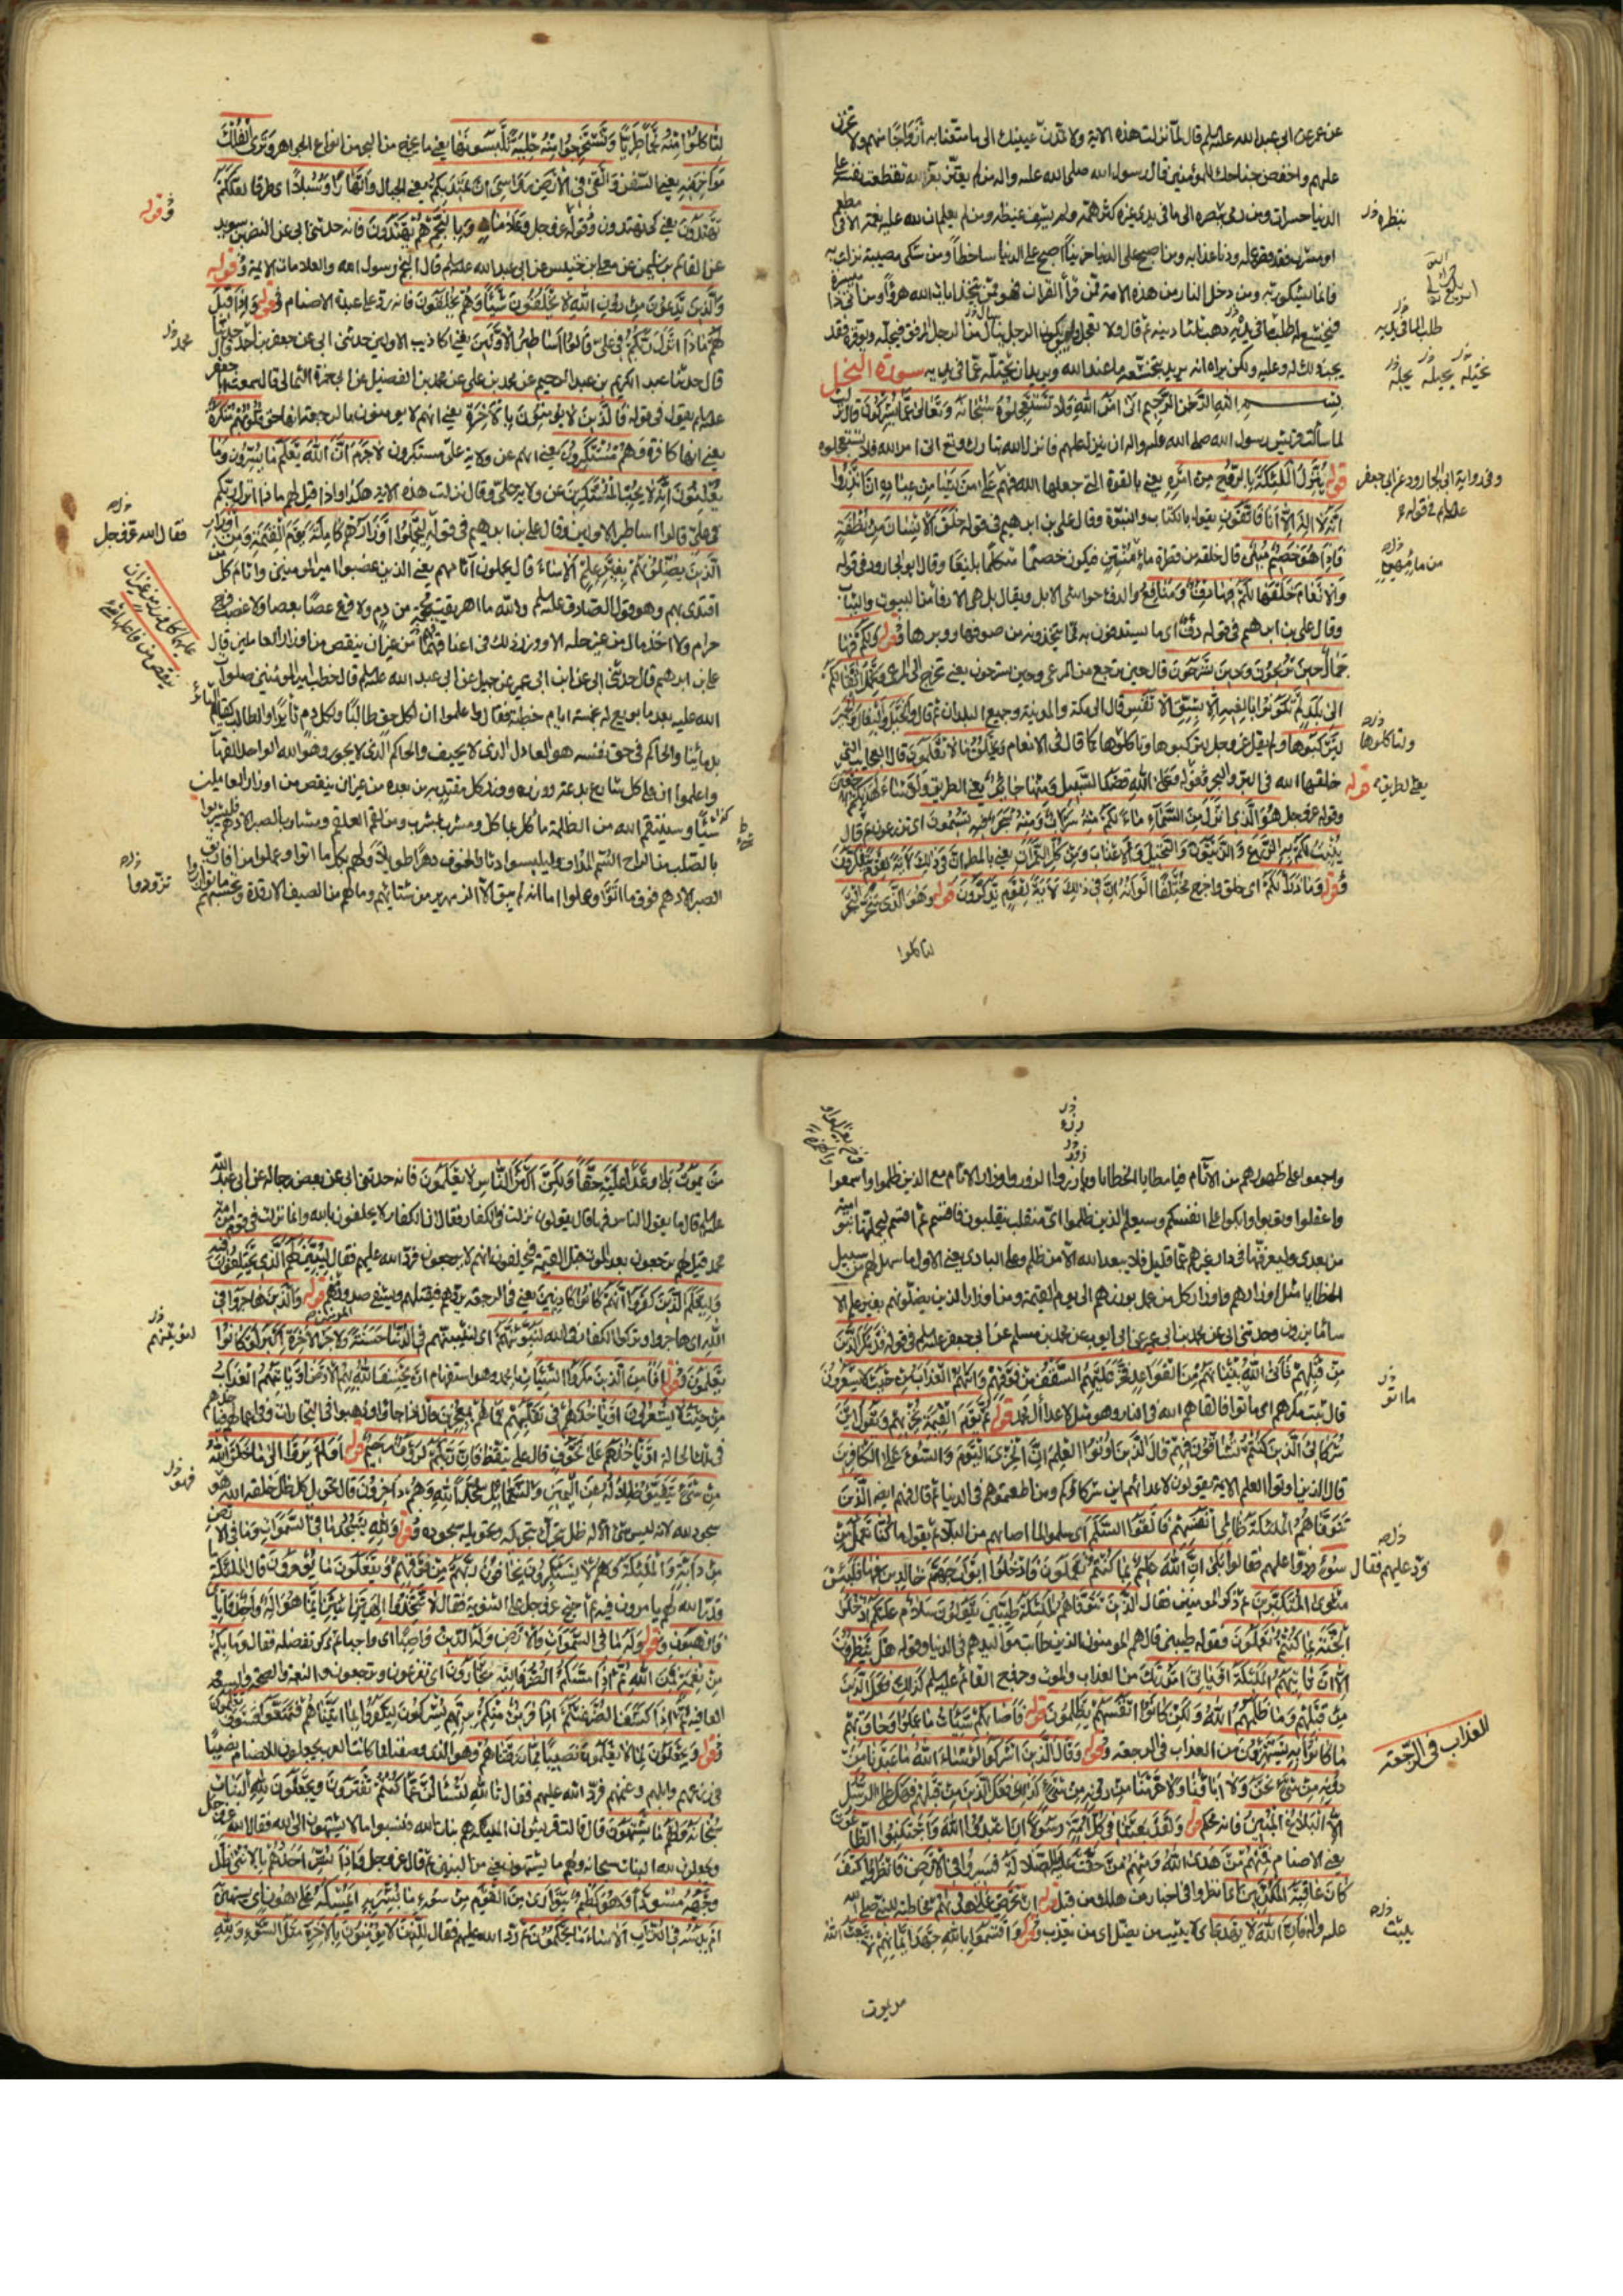 عن عمر عن ابى عبد الله عليه السلم قال لما نزلت هذه الاية ولا تمدن عينيك الى ما متعنا به ازواجا منهم ولا تحزن
عليهم واخفض جناحك للمؤمنين قال رسول الله صلى الله عليه واله من لم يتعز بعزاء الله تقطعت نفسه على
الدنيا حسرات ومن رمى ببصره الى ما فى يدى غيره كثر همه ولم يشف غيظه ومن لم يعلم ان لله عليه نعمة الا فى مطعم
او مشرب فقد قصر عمله ودنا عذابه ومن اصبح على الدنيا حزينا اصبح على الله ساخطا ومن شكى مصيبة نزلت به
فانما يشكو ربه ومن دخل النار من هذه الامة ممن قرأ القران فهو ممن يتخذ ايات الله هزوا ومن اتى ذا ميسرة
فيخشع له طلب ما فى يديه ذهب ثلثا دينه ثم قال ولا تعجل وليس يكون الرجل ينال من الرجل المرفق فيجله ويوقره فقد
يجب ذلك له عليه ولكن يراه انه يريد بتخشعه ما عند الله ويريد ان يختله عما فى يديه سورة النحل
بسم الله الرحمن الرحيم اتى امر الله فلا تستعجلوه سبحانه وتعالى عما يشركون قال نزلت
لما سألت قريش رسول الله صلى الله عليه واله ان ينزل عليهم فانزل الله تبارك وتعالى اتى امر الله فلا تستعجلوه
قوله ينزل الملئكة بالروح من امره يعنى بالقوة التى جعلها الله فيهم على من يشاء من عباده ان انذروا
انه لا اله الا انا فاتقون يقول بالكتاب والنبوة وقال على بن ابرهيم فى قوله خلق الانسان من نطفة
فاذا هو خصيم مبين قال خلقه من قطرة ماء منتن فيكون خصيما متكلما بليغا وقال ابو الجارود فى قوله
والانعام خلقها لكم فيها دفء ومنافع والدفء حواشى الابل ويقال بل هى الادفاء من البيوت والثياب
وقال على بن ابرهيم فى قوله دفء اى ما يستدفئون به مما يتخذونه من صوفها ووبرها وقوله ولكم فيها
جمال حين تريحون وحين تسرحون قال حين ترجع من المرعى وحين تسرحون يعنى تخرج الى المرعى وتحمل اثقالكم
الى بلد لم تكونوا بالغيه الا بشق الانفس قال الى مكة والمدينة وجميع البلدان ثم قال والخيل والبغال والحمير
لتركبوها ولم يقل عز وجل لتركبوها وتاكلوها كما قال فى الانعام ويخلق ما لا تعلمون قال العجايب التى
خلقها الله فى البر والبحر وقوله وعلى الله قصد السبيل ومنها جائر يعنى الطريق ولو شاء لهديكم اجمعين
وقوله عز وجل هو الذى انزل من السماء ماء لكم منه شراب ومنه شجر فيه تسيمون اى تزرعون ثم قال
ينبت لكم به الزرع والزيتون والنخيل والاعناب ومن كل الثمرات يعنى بالمطر ان فى ذلك لاية لقوم يتفكرون
وقوله وما ذرأ لكم اى خلق واخرج مختلفا الوانه ان فى ذلك لاية لقوم يذكرون قوله وهو الذى سخر البحر
لتاكلوا
ننظره
طلب لما فى يديه
يختله يحيله يجله
وفى رواية ابى الجارود عن ابى جعفر
عليه السلم فى قوله
من ماء مهين
ولتاكلوها
يعنى الطريق قوله
لتاكلوا منه لحما طريا وتستخرجوا منه حلية تلبسونها يعنى ما يخرج من البحر من انواع الجواهر وترى الفلك
مواخر فيه يعنى السفن والقى فى الارض رواسى ان تميد بكم يعنى الجبال وانهارا وسبلا اى طرقا لعلكم
تهتدون يعنى كى تهتدون وقوله عز وجل وعلامات وبالنجم هم يهتدون فانه حدثنى ابى عن النضر بن سويد
عن القاسم بن سليمن عن معلى بن خنيس عن ابى عبد الله عليه السلم قال النجم رسول الله والعلامات الائمة وقوله
والذين يدعون من دون الله لا يخلقون شيئا وهم يخلقون فانه رد على عبدة الاصنام قوله واذا قيل
لهم ماذا انزل ربكم فى على قالوا اساطير الاولين يعنى اكاذيب الاولين حدثنى ابى عن جعفر بن احمد قال حدثنا
قال حدثنا عبد الكريم بن عبد الرحيم عن محمد بن على عن محمد بن الفضيل عن ابى حمزة الثمالى قال سمعت ابا جعفر
عليه السلم يقول فى قوله فالذين لا يؤمنون بالاخرة يعنى انهم لا يؤمنون بالرجعة انها حق قلوبهم منكرة
يعنى انها كافرة وهم مستكبرون يعنى انهم عن ولاية على مستكبرون لا جرم ان الله يعلم ما يسرون وما
يعلنون انه لا يحب المستكبرين عن ولاية على وقال نزلت هذه الاية هكذا واذا قيل لهم ماذا انزل ربكم
فى على قالوا اساطير الاولين وقال على بن ابرهيم فى قوله ليحملوا اوزارهم كاملة يوم القيمة ومن اوزار
الذين يضلونهم بغير علم الا ساء قال يحملون آثامهم يعنى الذين غصبوا امير المؤمنين واثام كل من
اقتدى بهم وهو قول الصادق عليه السلم والله ما اهريقت محجمة من دم ولا قرع عصا بعصا ولا غصب فرج
حرام ولا اخذ مال من غير حله الا وزر ذلك فى اعناقهما من غير ان ينقص من اوزار العاملين قال
على بن ابرهيم قال حدثنى ابى عن ابن ابى عمير عن جميل عن ابى عبد الله عليه السلم قال خطب امير المؤمنين صلوات
الله عليه بعد ما بويع له بخمسة ايام خطبة فقال واعلموا ان لكل حق طالبا ولكل دم ثائرا والطالب كقيام الثائر
بدمائنا والحاكم فى حق نفسه هو العادل الذى لا يحيف والحاكم الذى لا يجور وهو الله الواحد القهار
واعلموا ان على كل شارع بدعة وزره ووزر كل مقتد به من بعده من غير ان ينقص من اوزار العاملين
شيئا وسينتقم الله من الظلمة ماكل بماكل ومشرب بمشرب من لقم العلقم ومشارب الصبر الادهم فليشربوا
بالصلب من الراح السم المذاف وليلبسوا دثار الخوف دهرا طويلا ولهم بكل ما اتوا وعملوا من افاريق
الصبر الادهم فوق ما اتوا وعملوا اما انه لم يبق الا الزمهرير من شتائهم وما لهم من الصيف الا رقدة
وقوله
محمد
فقال الله عز وجل
تزودوا
واجمعوا على ظهورهم من الاثام فيا مطايا الخطايا ويا زور الزور واوزار الاثام مع الذين ظلموا واسمعوا
واعقلوا وتوبوا وابكوا على انفسكم وسيعلم الذين ظلموا اى منقلب ينقلبون فاقسم ثم اقسم ليحملنها بنو امية
من بعدى وليعرفنها فى دار غيرهم عما قليل فلا يبعد الله الا من ظلم وعلى البادى يعنى الاول ما سهل لهم من سبيل
الخطايا مثل اوزارهم واوزار كل من عمل بوزرهم الى يوم القيمة ومن اوزار الذين يضلونهم بغير علم الا
ساء ما يزرون وحدثنى ابى عن محمد بن ابى عمير عن ابى ايوب عن محمد بن مسلم عن ابى جعفر عليه السلم فى قوله قد مكر الذين
من قبلهم فاتى الله بنيانهم من القواعد فخر عليهم السقف من فوقهم واتيهم العذاب من حيث لا يشعرون
قال ثبت مكرهم اى ماتوا فالقاهم الله فى النار وهو مثل لاعداء آل محمد قوله ثم يوم القيمة يخزيهم ويقول اين
شركائى الذين كنتم تشاقون فيهم قال الذين اوتوا العلم ان الخزى اليوم والسوء على الكافرين
قال الذين اوتوا العلم الائمة يقولون لاعدائهم اين شركاؤكم ومن اطعتموهم فى الدنيا ثم قال فيهم ايضا الذين
تتوفاهم الملئكة ظالمى انفسهم فالقوا السلم اى سلموا لما اصابهم من البلاء ثم يقولون ما كنا نعمل من
سوء فرد الله عليهم فقالوا بلى ان الله عليم بما كنتم تعملون فادخلوا ابواب جهنم خالدين فيها فلبئس
مثوى المتكبرين ثم ذكر المومنين فقال الذين تتوفاهم الملئكة طيبين يقولون سلام عليكم ادخلوا
الجنة بما كنتم تعملون وقوله طيبين قال هم المومنون الذين طابت مواليدهم فى الدنيا وقوله هل ينظرون
الا ان تاتيهم الملئكة او ياتى امر ربك من العذاب والموت وخروج القائم عليه السلم كذلك فعل الذين
من قبلهم وما ظلمهم الله ولكن كانوا انفسهم يظلمون قوله فاصابهم سيئات ما عملوا وحاق بهم
ما كانوا به يستهزؤن من العذاب فى الرجعة وقوله وقال الذين اشركوا لو شاء الله ما عبدنا من
دونه من شئ نحن ولا اباؤنا ولا حرمنا من دونه من شئ كذلك فعل الذين من قبلهم فهل على الرسل
الا البلاغ المبين فانه محكم قوله ولقد بعثنا فى كل امة رسولا ان اعبدوا الله واجتنبوا الطاغوت
يعنى الاصنام فمنهم من هدى الله ومنهم من حقت عليه الضلالة فسيروا فى الارض فانظروا كيف
كان عاقبة المكذبين اى انظروا فى اخبار من هلك من قبل قوله ان تحرص على هديهم مخاطبة للنبى صلى الله
عليه واله فان الله لا يهدى اى لا يثيب من يضل اى من يعذب وقوله واقسموا بالله جهد ايمانهم لا يبعث الله
من يموت
ما اتوا
فرد عليهم فقال
العذاب فى الرجعة
يثيب
من يموت بلى وعدا عليه حقا ولكن اكثر الناس لا يعلمون فانه حدثنى ابى عن بعض رجاله عن ابى عبد الله
عليه السلم قال ما يقول الناس فيها قال يقولون نزلت فى الكفار فقال ان الكفار لا يحلفون بالله وانما نزلت فى قوم من امة
محمد قيل لهم ترجعون بعد الموت قبل القيمة فيحلفون انهم لا يرجعون فرد الله عليهم فقال ليبين لهم الذى يختلفون فيه
وليعلم الذين كفروا انهم كانوا كاذبين يعنى فى الرجعة يردهم فيقتلهم ويشفى صدور المومنين منهم قوله والذين هاجروا فى
الله اى هاجروا وتركوا الكفار فى الله لنبوئنهم اى لنثيبنهم فى الدنيا حسنة ولاجر الاخرة اكبر لو كانوا
يعلمون وقوله افامن الذين مكروا السيئات يا محمد وهو استفهام ان يخسف الله بهم الارض او ياتيهم العذاب
من حيث لا يشعرون او ياخذهم فى تقلبهم فما هم بمعجزين قال اذا جاؤا وذهبوا فى التجارات وفى اعمالهم فياخذهم
فى تلك الحالة او ياخذهم على تخوف قال على تيقظ فان ربكم لرؤف رحيم قوله اولم يروا الى ما خلق الله
من شئ يتفيؤ ظلاله عن اليمين والشمائل سجدا لله وهم داخرون قال تحويل كل ظل خلقه الله هو
سجود لله لانه ليس شئ الا له ظل يتحرك بتحركه وتحويله سجوده وقوله ولله يسجد ما فى السموات وما فى الارض
من دابة والملئكة وهم لا يستكبرون يخافون ربهم من فوقهم ويفعلون ما يؤمرون قال الملئكة
قدر الله لهم ما يمرون فيه ثم احتج عز وجل على الثنوية فقال لا تتخذوا الهين اثنين انما هو اله واحد فاياى
فارهبون وقوله وله ما فى السموات والارض وله الدين واصبا اى واجبا ثم ذكر تفضله فقال وما بكم
من نعمة فمن الله ثم اذا مسكم الضر فاليه تجأرون اى تفزعون وترجعون والنعمة الصحة والسعة
والعافية ثم اذا كشف الضر عنكم اذا فريق منكم بربهم يشركون ليكفروا بما اتيناهم فتمتعوا فسوف تعلمون
وقوله ويجعلون لما لا يعلمون نصيبا مما رزقناهم وهو الذى وصفناه كانت العرب يجعلون للاصنام نصيبا
فى زرعهم وابلهم وغنمهم فرد الله عليهم فقال تالله لتسألن عما كنتم تفترون ويجعلون لله البنات
سبحانه ولهم ما يشتهون قال قالت قريش ان الملئكة هم بنات الله فنسبوا ما لا يشتهون الى الله فقال الله عز وجل
ويجعلون لله البنات سبحانه ولهم ما يشتهون يعنى من البنين ثم قال عز وجل واذا بشر احدهم بالانثى ظل
وجهه مسودا وهو كظيم يتوارى من القوم من سوء ما بشر به ايمسكه على هون اى يستهين به
ام يدسه فى التراب الا ساء ما يحكمون ثم رد الله عليهم فقال للذين لا يؤمنون بالاخرة مثل السوء ولله
لنثيبنهم
فهو